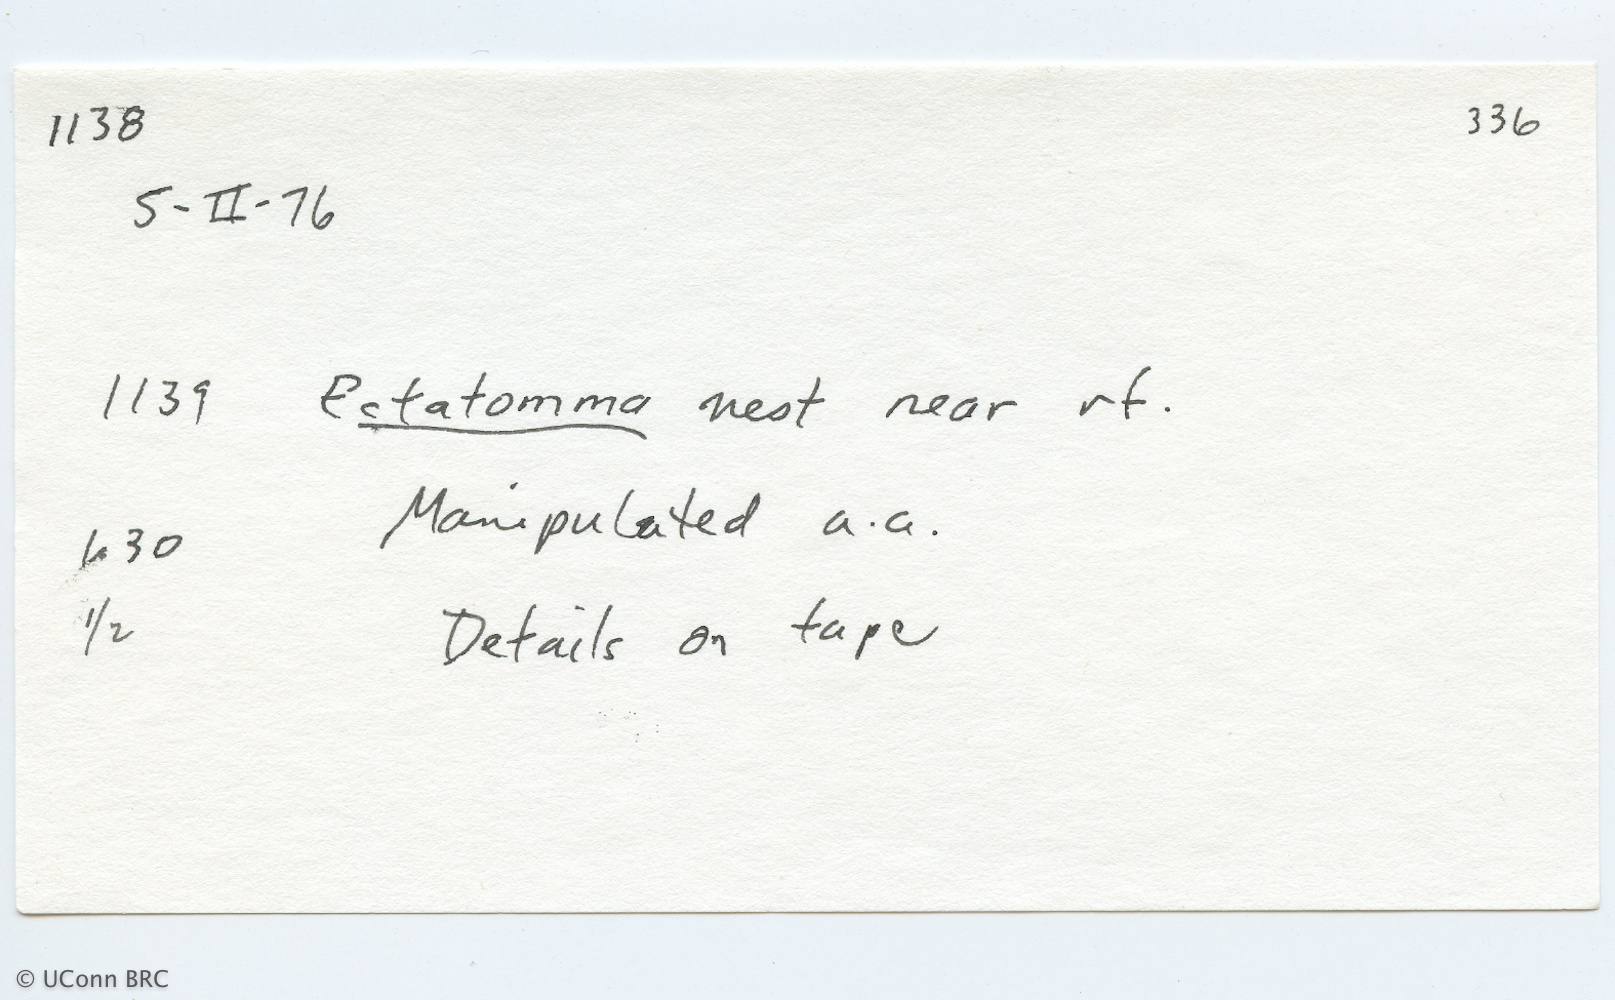 1138 336
5-II-76
1139 Ectatomma nest near rf.
Manipulated a.a.
30
1/2 Details on tape
© UConn BRC